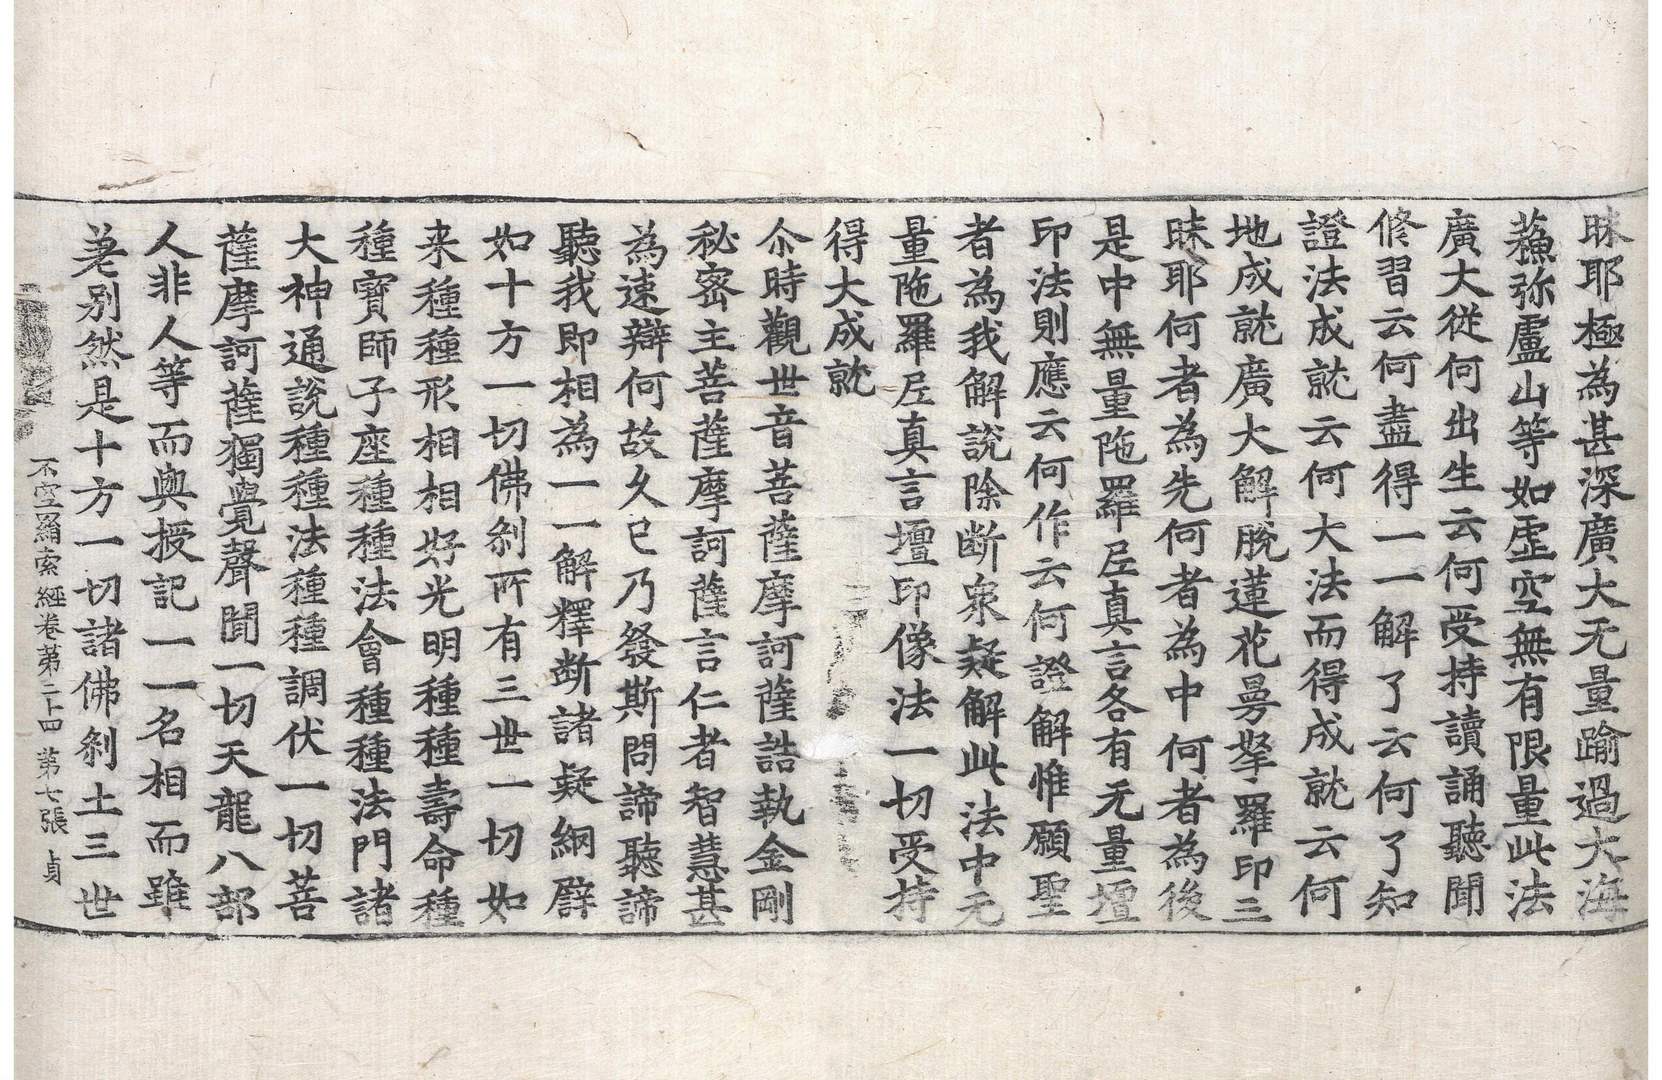 昧耶極為甚深廣大无量踰過大海
蘓弥盧山等如虛空無有限量此法
廣大從何出生云何受持讀誦聽聞
修習云何盡得一一解了云何了知
證法成就云何大法而得成就云何
地成就廣大解脫蓮花曼拏羅印三
昧耶何者為先何者為中何者為後
是中無量陁羅尼真言各有无量壇
印法則應云何作云何證解惟願聖
者為我解說除断衆疑解此法中无
量陁羅尼真言壇印像法一切受持
得大成就
尒時觀世音菩薩摩訶薩誥執金剛
秘密主菩薩摩訶薩言仁者智慧甚
為速辯何故久已乃發斯問諦聽諦
聽我即相為一一解釋断諸疑網礔
如十方一切佛刹所有三世一切如
来種種形相相好光明種種壽命種
種寶師子座種種法會種種法門諸
大神通說種種法種種調伏一切菩
薩摩訶薩獨覺聲聞一切天龍八部
人非人等而與授記一一名相而雖
差別然是十方一切諸佛刹土三世
不空羂索經卷第二十四 第七張 貞